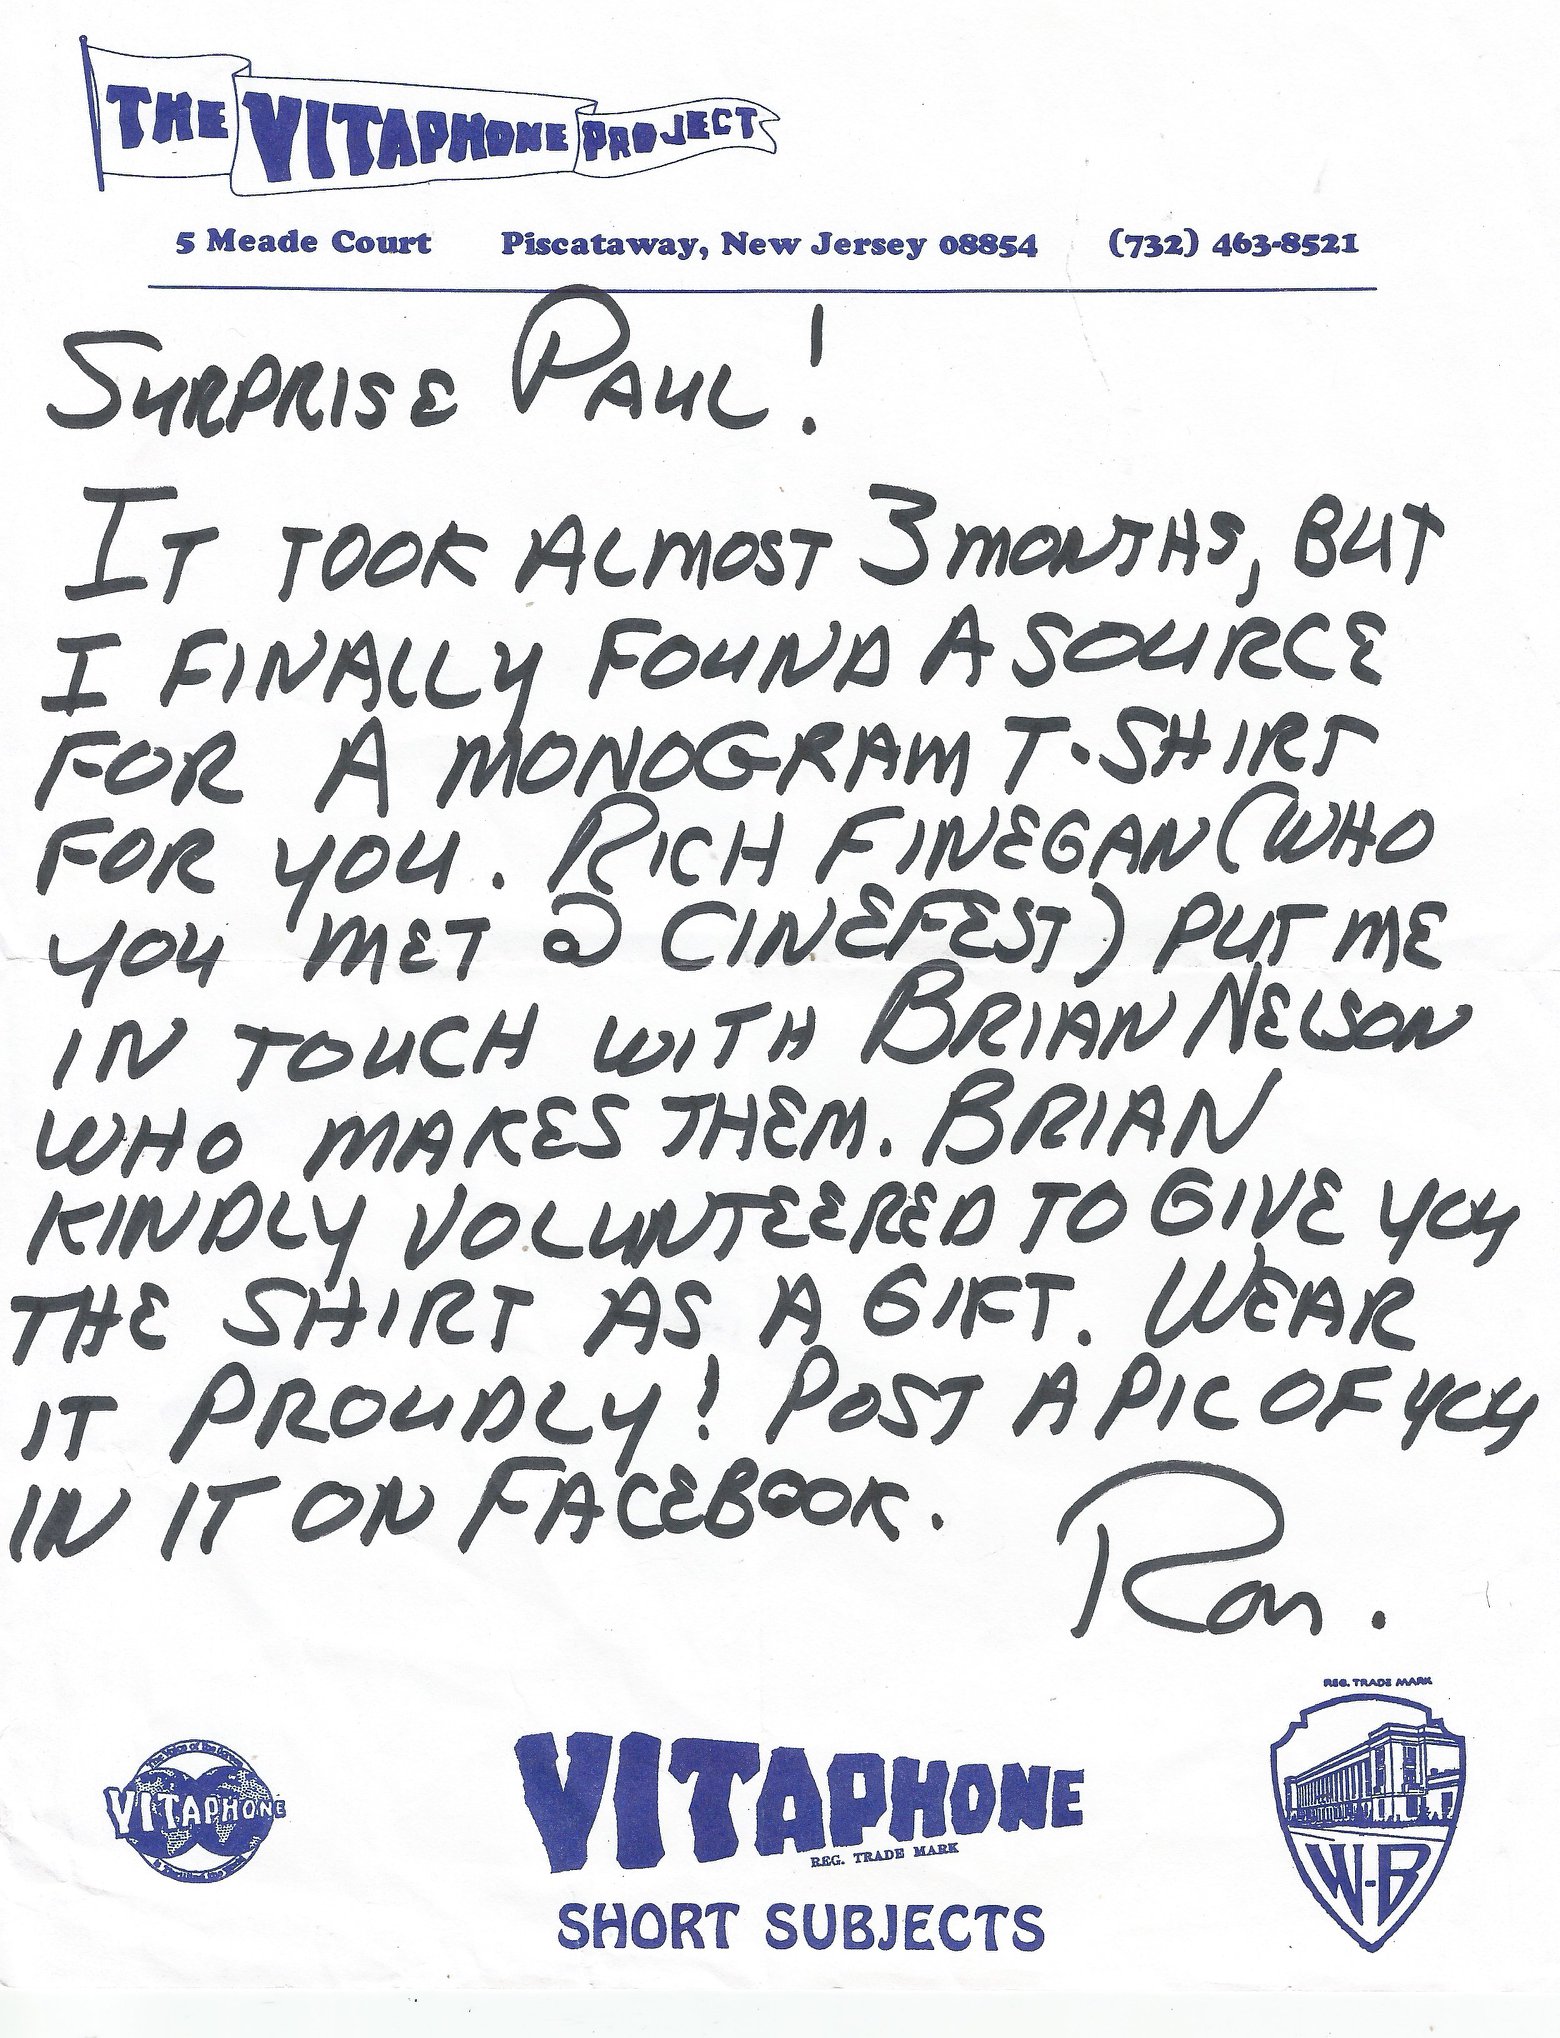 THE VITAPHONE PROJECT
5 Meade Court Piscataway, New Jersey 08854 (732) 463-8521
SURPRISE PAUL!
IT TOOK ALMOST 3 MONTHS, BUT
I FINALLY FOUND A SOURCE
FOR A MONOGRAM T-SHIRT
FOR YOU. RICH FINEGAN (WHO
YOU MET @ CINEFEST) PUT ME
IN TOUCH WITH BRIAN NELSON
WHO MAKES THEM. BRIAN
KINDLY VOLUNTEERED TO GIVE YOU
THE SHIRT AS A GIFT. WEAR
IT PROUDLY! POST A PIC OF YOU
IN IT ON FACEBOOK.
Ron.
VITAPHONE
VITAPHONE
REG. TRADE MARK
SHORT SUBJECTS
REG. TRADE MARK
W-B